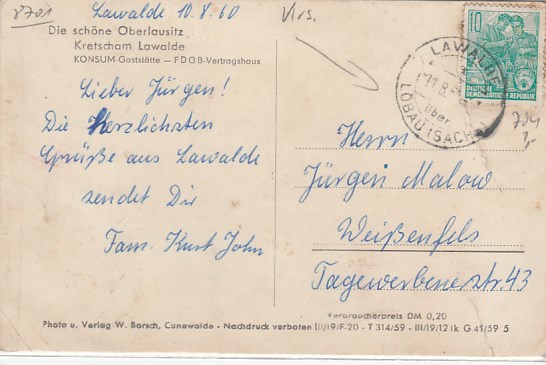 8701
Lawalde 10.8.60
Die schöne Oberlausitz
Kretscham Lawalde
KONSUM-Gaststätte — FDGB-Vertragshaus
Lieber Jürgen!
Die Herzlichsten
Grüße aus Lawalde
sendet Dir
Fam. Kurt John
10
DEUTSCHE
DEMOKRATISCHE REPUBLIK
LAWALDE
über
LÖBAU (SACHS)
Herrn
Jürgen Malow
Weißenfels
Tagewerbenerstr. 43
Verbraucherpreis DM 0,20
Photo u. Verlag W. Barsch, Cunewalde - Nachdruck verboten III/19/F-20 - T 314/59 - III/19/12 lk G 41/59 5